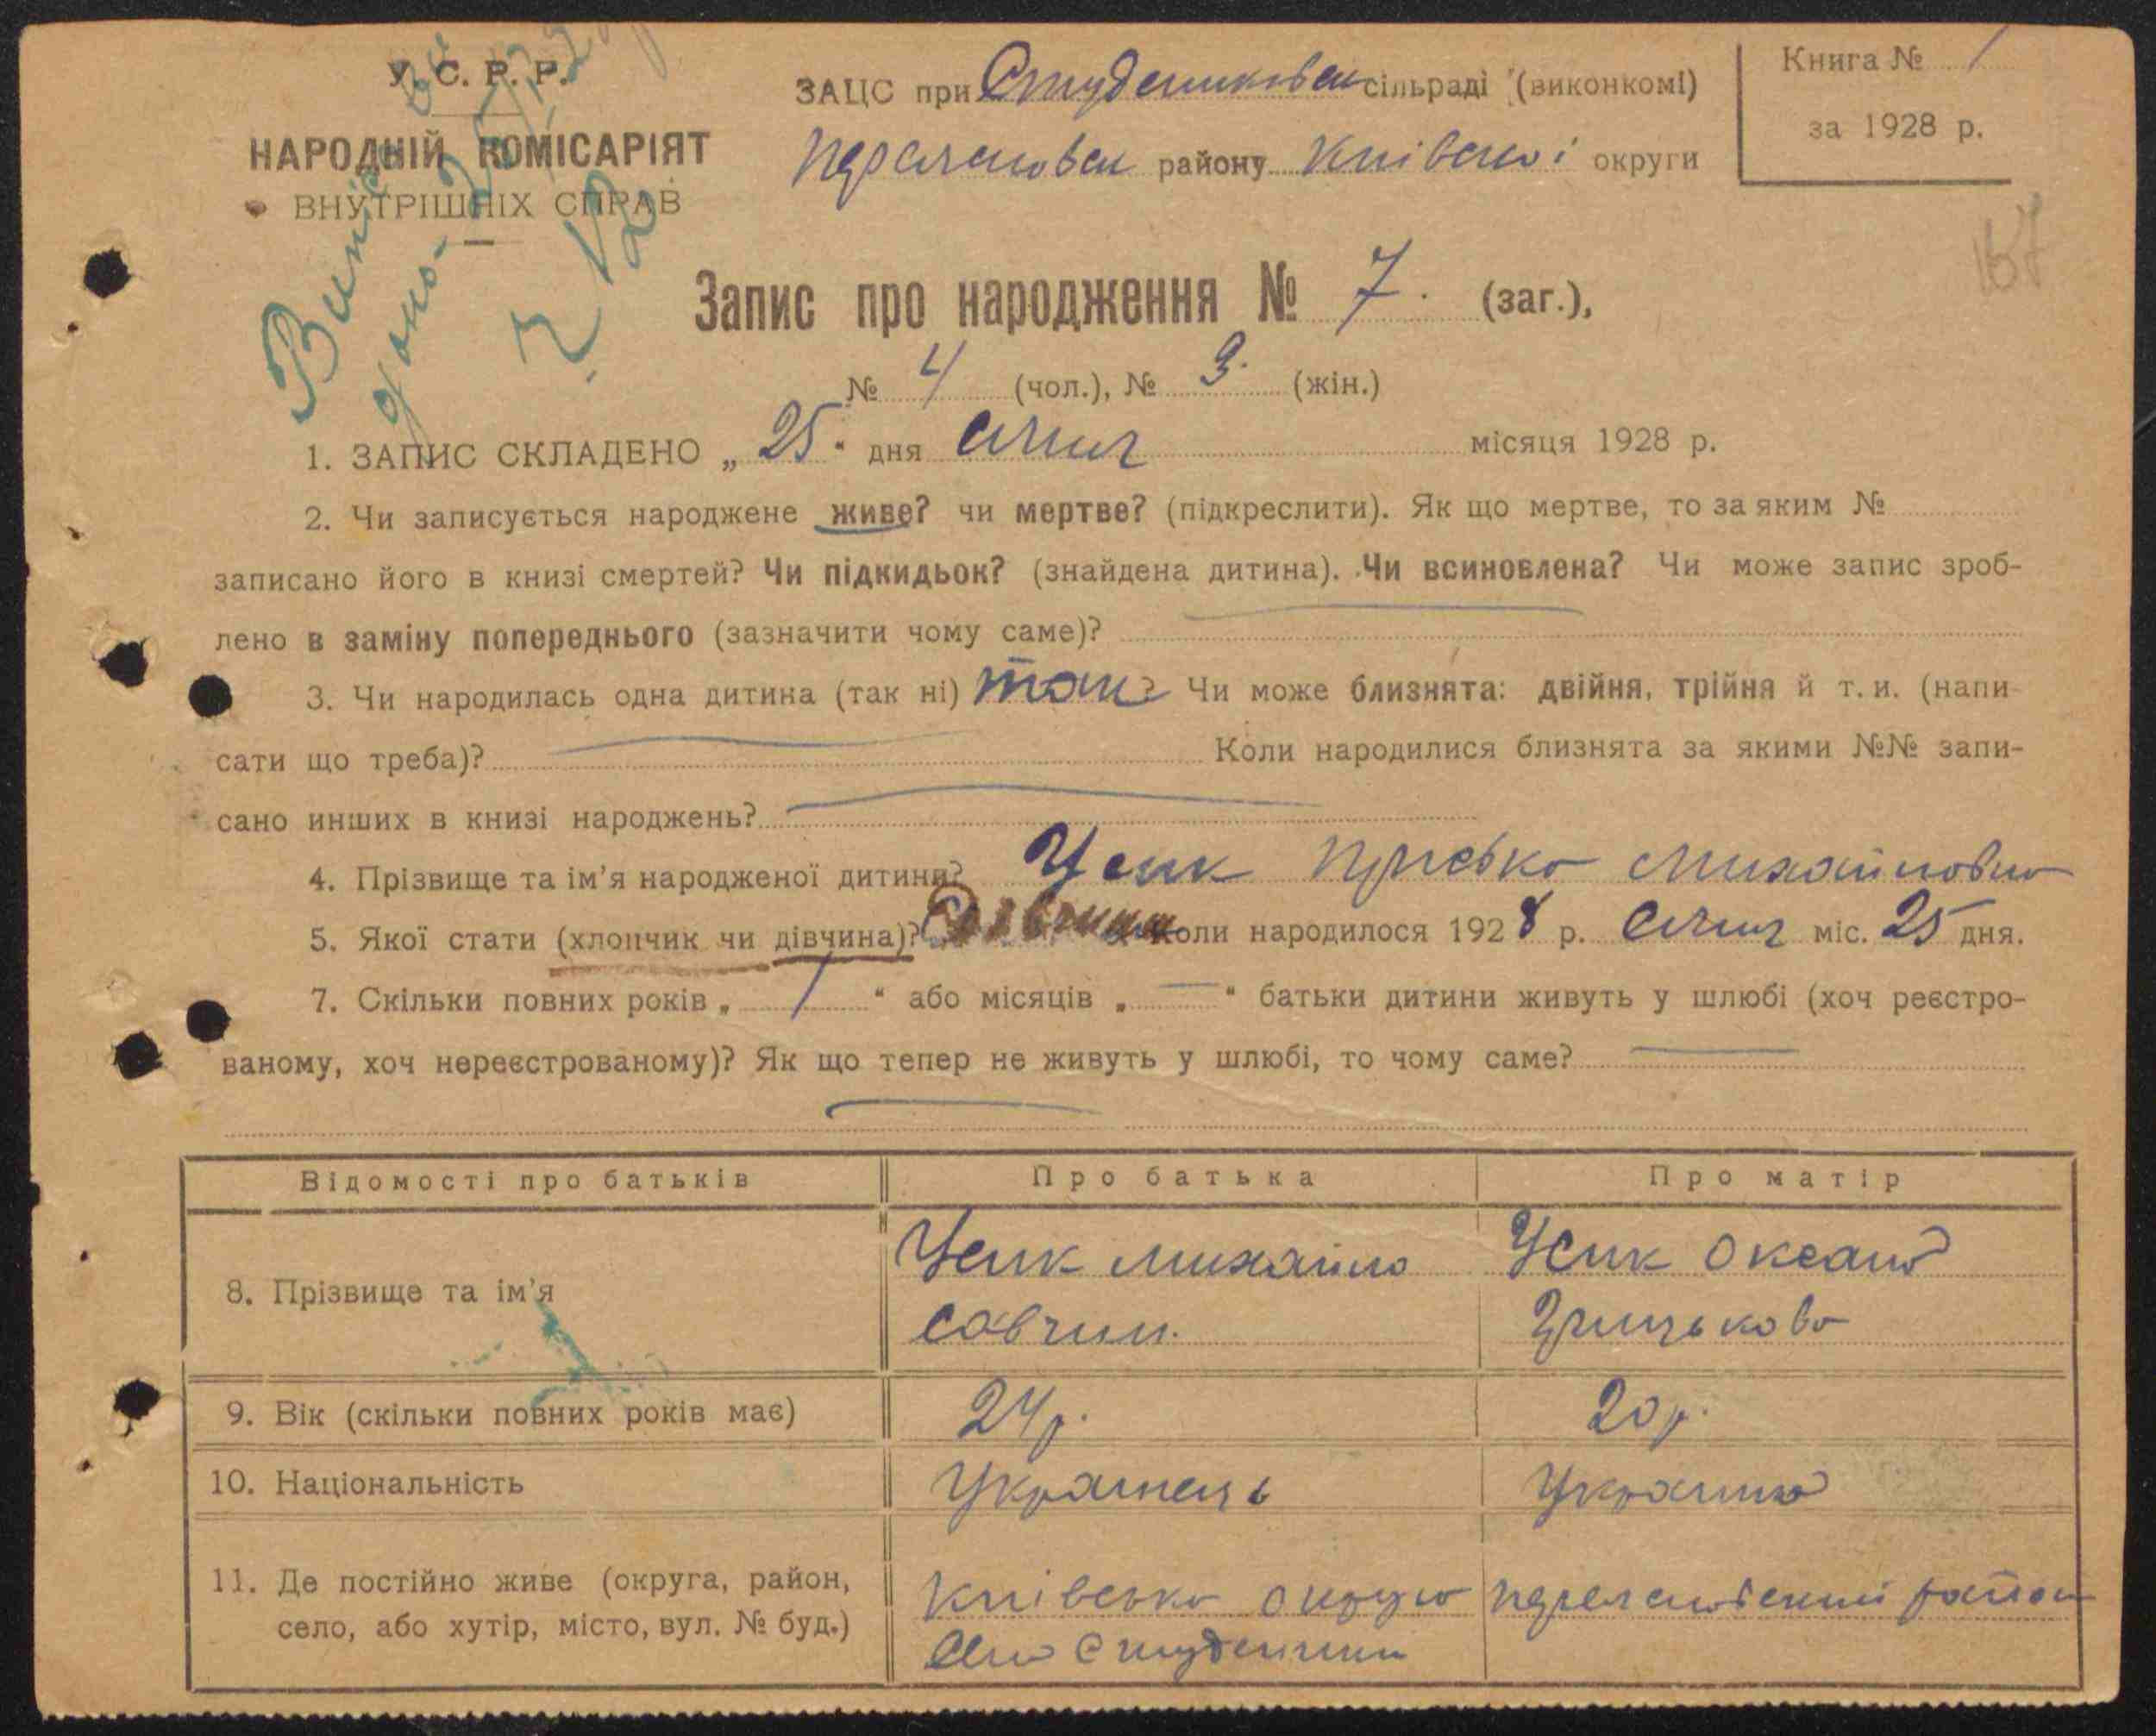 У. С. Р. Р.
НАРОДНІЙ КОМІСАРІЯТ
ВНУТРІШНІХ СПРАВ
ЗАЦС при Студениковск сільраді (виконкомі)
району Київської округи
Книга № 1
за 1928 р.
167
Запис про народження № 7. (заг.),
№ 4 (чол.), № 3. (жін.)
1. ЗАПИС СКЛАДЕНО „ 25 “ дня січня місяця 1928 р.
2. Чи записується народжене живе? чи мертве? (підкреслити). Як що мертве, то за яким №
записано його в книзі смертей? Чи підкидьок? (знайдена дитина). Чи всиновлена? Чи може запис зроб-
лено в заміну попереднього (зазначити чому саме)?
3. Чи народилась одна дитина (так ні) так Чи може близнята: двійня, трійня й т. и. (напи-
сати що треба)? Коли народилися близнята за якими №№ запи-
сано инших в книзі народжень?
4. Прізвище та ім'я народженої дитини? Усик Пріська Михайловна
5. Якої стати (хлопчик чи дівчина)? Дівчина Коли народилося 1928 р. Січня міс. 25 дня.
7. Скільки повних років „ 1 “ або місяців „ — “ батьки дитини живуть у шлюбі (хоч реєстро-
ваному, хоч нереєстрованому)? Як що тепер не живуть у шлюбі, то чому саме?
Відомості про батьків Про батька Про матір
8. Прізвище та ім'я Усик Михайло Усик Оксана
Савчин. Грицькова
9. Вік (скільки повних років має) 24 р. 20 р.
10. Національність Українець Українка
11. Де постійно живе (округа, район, Київська округа Переяславський район
село, або хутір, місто, вул. № буд.) село Студеники